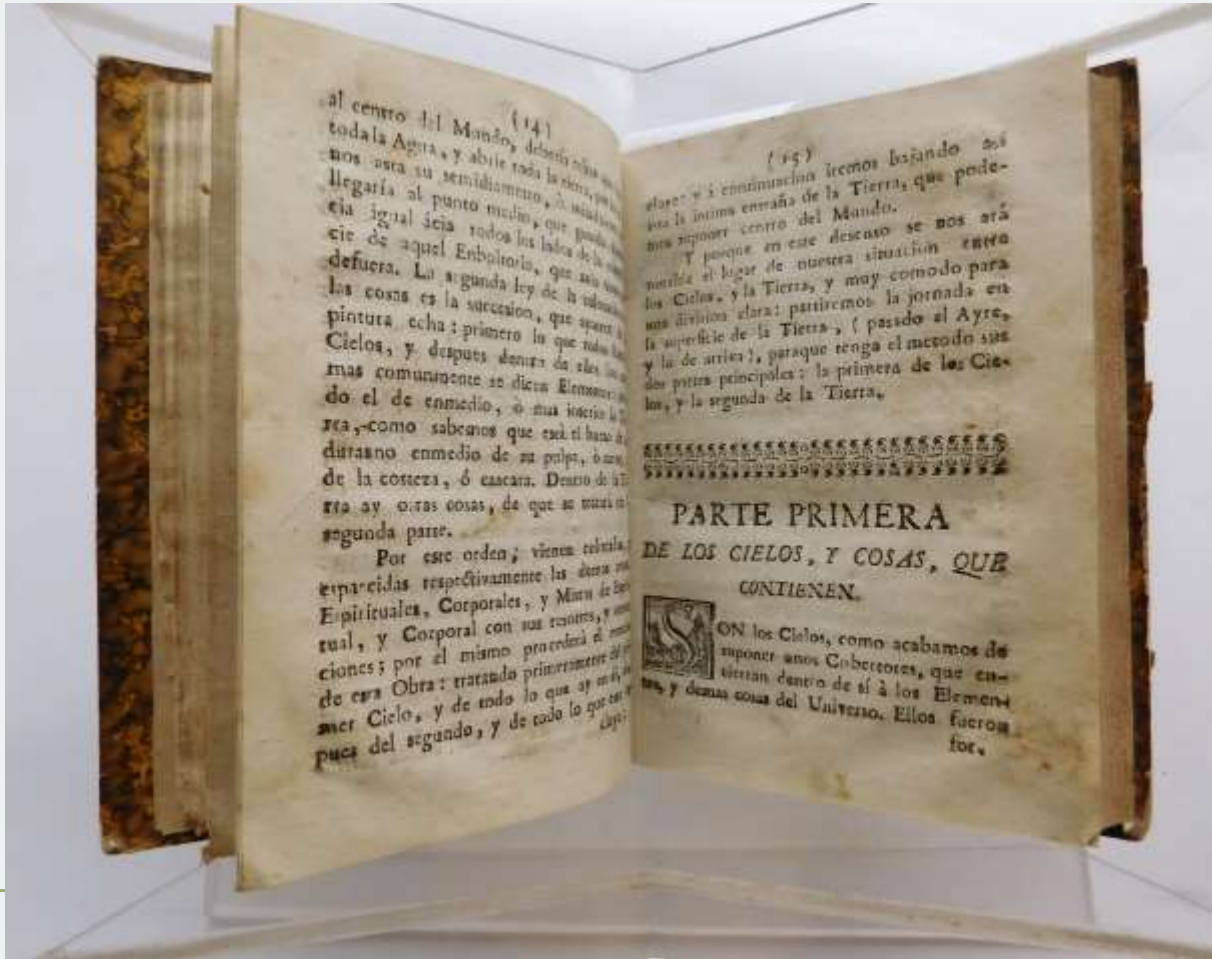 (14)
al centro del Mundo, debería
toda la Agua, y abrir toda la tierra, por
nos asta su semidiametro, ò
llegaría al punto medio, que
cia igual ácia todos los lados de la
cie de aquel Enboltorio, que
defuera. La segunda ley de la
las cosas es la succesion, que
pintura echa: primero lo que
Cielos, y despues dentro de ellos
mas comunmente se dicen Elementos
do el de enmedio, ò mas interior la
rra, como sabemos que está el hueso
durasno enmedio de su pulpa, ò
de la corteza, ó cascara. Dentro de la
rra ay otras cosas, de que se tratará en
segunda parte.
Por este orden; vienen
esparcidas respectivamente las demas
Espirituales, Corporales, y Mixtas de
tual, y Corporal con sus
ciones; por el mismo procederá el
de esta Obra: tratando primeramente del
mer Cielo, y de todo lo que ay en él,
pues del segundo, y de todo lo que
(15)
y à continuacion iremos bajando
asta la intima entraña de la Tierra, que pode-
mos suponer centro del Mundo.
Y porque en este descenso se nos ará
notable el lugar de nuestra situacion entre
los Cielos, y la Tierra, y muy comodo para
una division clara: partiremos la jornada en
la superficie de la Tierra, ( pasado el Ayre,
y lo de arriba), paraque tenga el metodo sus
dos partes principales: la primera de los Cie-
los, y la segunda de la Tierra.
PARTE PRIMERA
DE LOS CIELOS, Y COSAS, QUE
CONTIENEN.
SON los Cielos, como acabamos de
suponer unos Cobertores, que en-
cierran dentro de sí à los Elemen-
tos, y demas cosas del Universo. Ellos fueron
for-